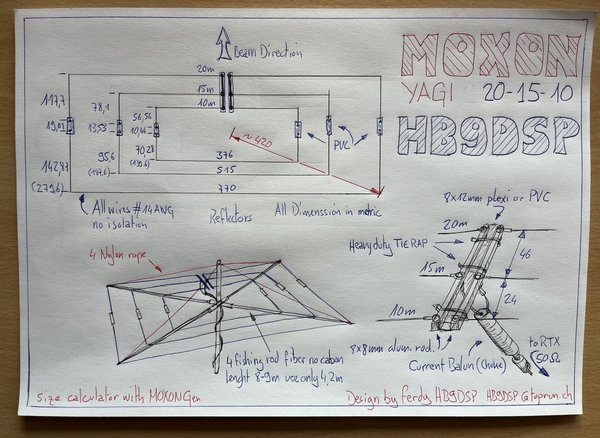 MOXON
YAGI 20-15-10
HB9DSP
Beam Direction
20m
15m
10m
117,7
78,1
56,56
19,01
13,53
10,46
142,87
95,6
70,28
(279,6)
(187,6)
(139,6)
376
515
770
~ 420
PVC
All wires #14AWG
no isolation
Reflectors
All Dimenssion in metric
4 Nylon rope
4 fishing rod fiber no cabon
lenght 8-9m use only 4,2m
8x12mm plexi or PVC
20m
Heavy duty TIERAP
15m
10m
46
24
8x8mm alum. rod.
Current Balun (Choke)
to RTX
50Ω
size calculator with MOXONGen
Design by ferdy HB9DSP HB9DSP@toprun.ch